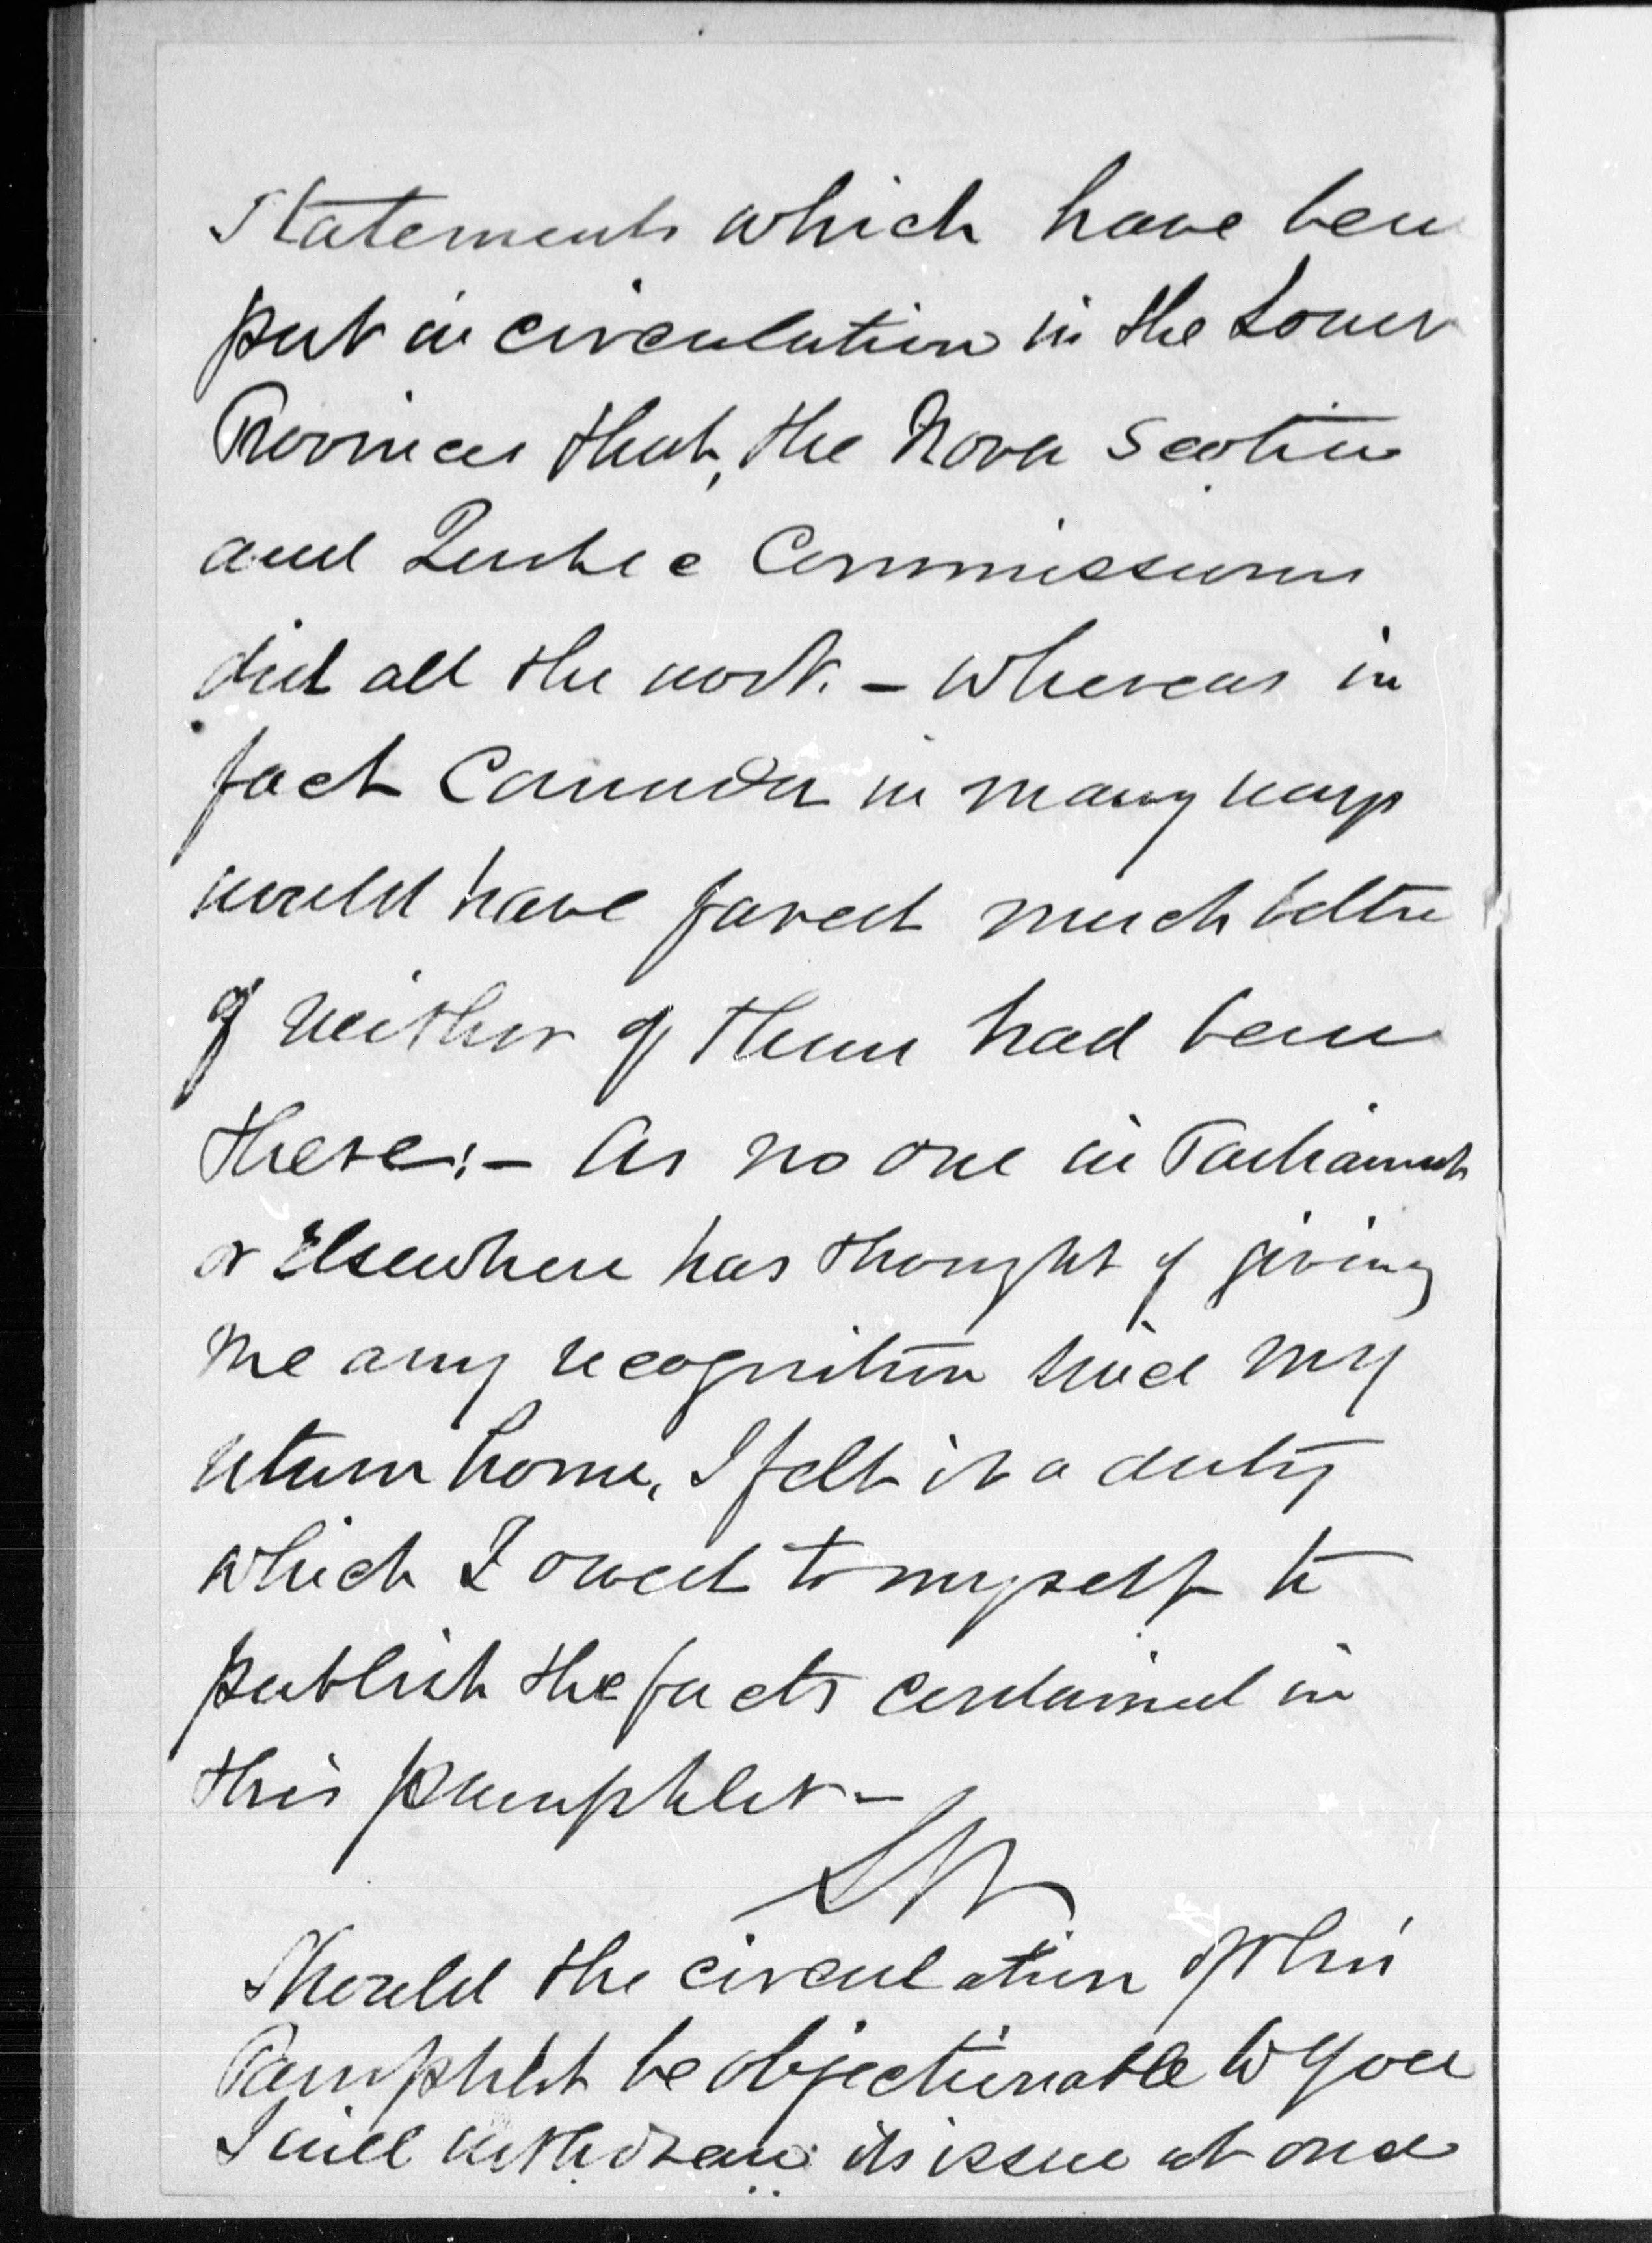 Statements which have been
put in circulation in the Lower
Provinces that, the Nova Scotia
and Quebec Commissioners
did all the work. – Whereas in
fact Canada in many ways
would have fared much better
if neither of them had been
there:– As no one in Parliament
or Elsewhere has thought of giving
me any recognition since my
return home, I felt it a duty
which I owed to myself to
publish the facts contained in
this pamphlet –
Should the circulation of this
Pamphlet be objectionable to you
I will withdraw its issue at once